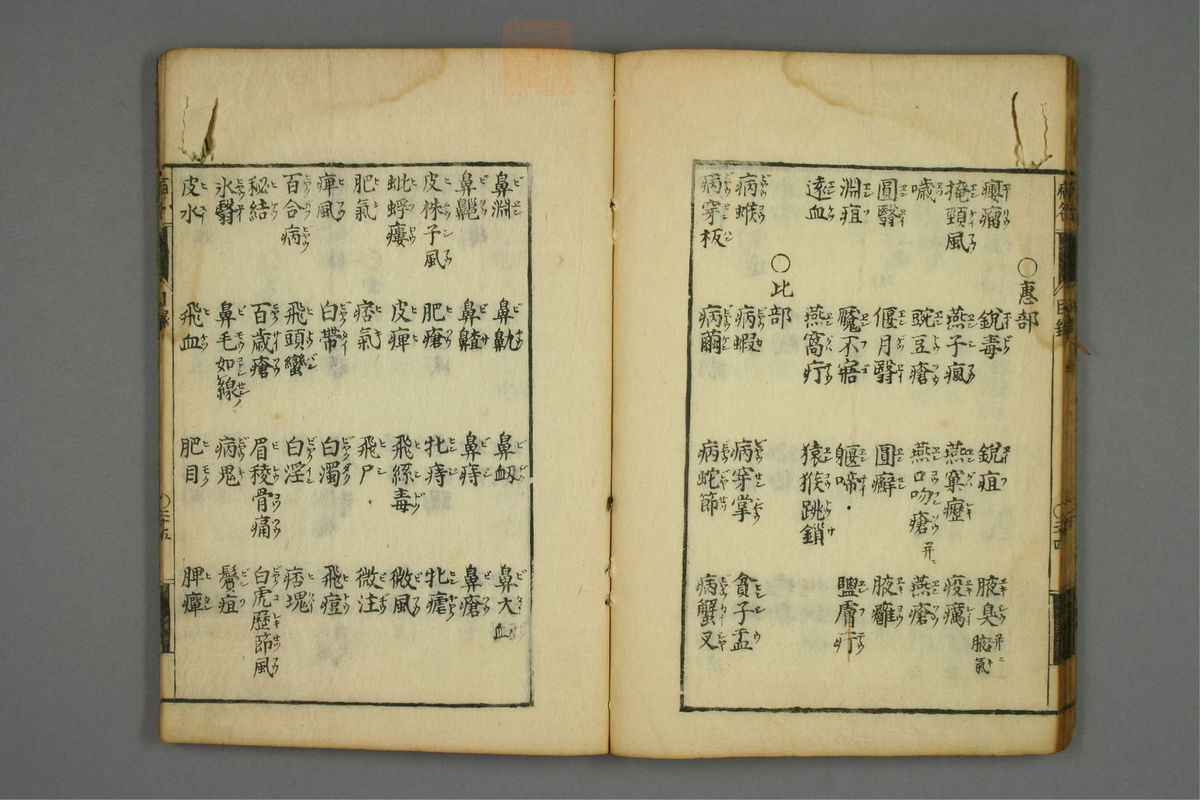 ○惠部
癭瘤 銳毒 銳疽 腋臭 并ニ腋氣
掩頸風 燕子瘋 燕窠癧 疫癘
噦 豌豆瘡 燕口吻瘡 并ニ燕瘡
圓翳 偃月翳 圓癬 腋癰
淵疽 魘不寤 躽啼 鹽膚疔
遠血 燕窩疔 猿猴跳鎖
○比部
病蝦 病穿掌 貧子盂
病穿板 病蛇節 病蟹叉
鼻淵 鼻鼽 鼻衂 鼻大血
鼻齆 鼻痔 鼻瘡
肥瘡 牝痔 牝瘧
蚍蜉瘻 皮痺 飛絲毒 微風
肥氣 痞氣 飛尸 微注
痺風 白帶 白濁 飛痘
百合病 飛頭蠻 白淫 痞塊
秘結 百歲瘡 眉稜骨痛 白虎歷節風
氷翳 鼻毛如線 病鬼 鬢疽
皮水 飛血 肥目 脾癉